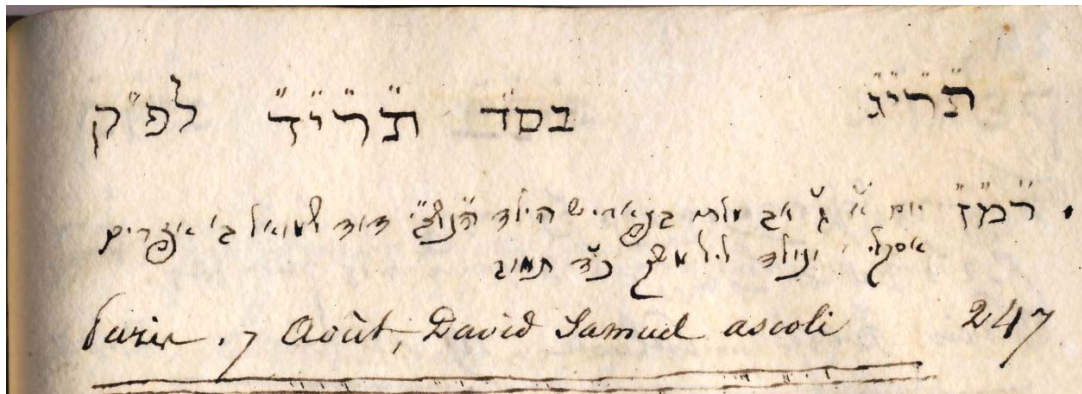 ת״ר״י״ג בס״ד ת״ר״י״ד לפ״ק
ר״מ״ז יום א׳ ג׳ אב מלתי בפאריש הילד דוד שמואל ב׳ אפרים
אסקלי ונולד ליל ש״ק כ״ד תמוז
Paris . 7 Août, David Samuel ascoli 247